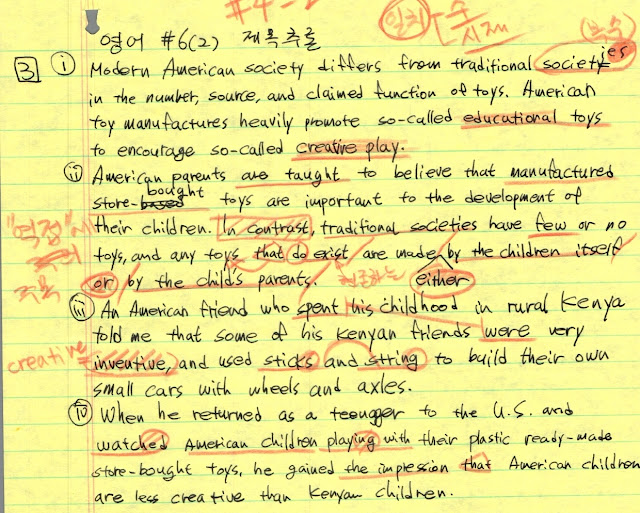 #4-2
일치 수 시제 (복수)
영어 #6(2) 제목추론
3 ⅰ Modern American society differs from traditional societyies
in the number, source, and claimed function of toys. American
toy manufactures heavily promote so-called educational toys
to encourage so-called creative play.
ⅱ American parents are taught to believe that manufactured
store-based bought toys are important to the development of
their children. In contrast, traditional societies have few or no
"역접"시
toys, and any toys that do exist are made by the children itself
or by the child's parents. 존재하는 either
주목
ⅲ An American friend who spent his childhood in rural Kenya
told me that some of his Kenyan friends were very
creative= inventive, and used sticks and string to build their own
small cars with wheels and axles.
ⅳ When he returned as a teenager to the U.S. and
watched American children playing with their plastic ready-made
store-bought toys, he gained the impression that American children
are less creative than Kenyan children.